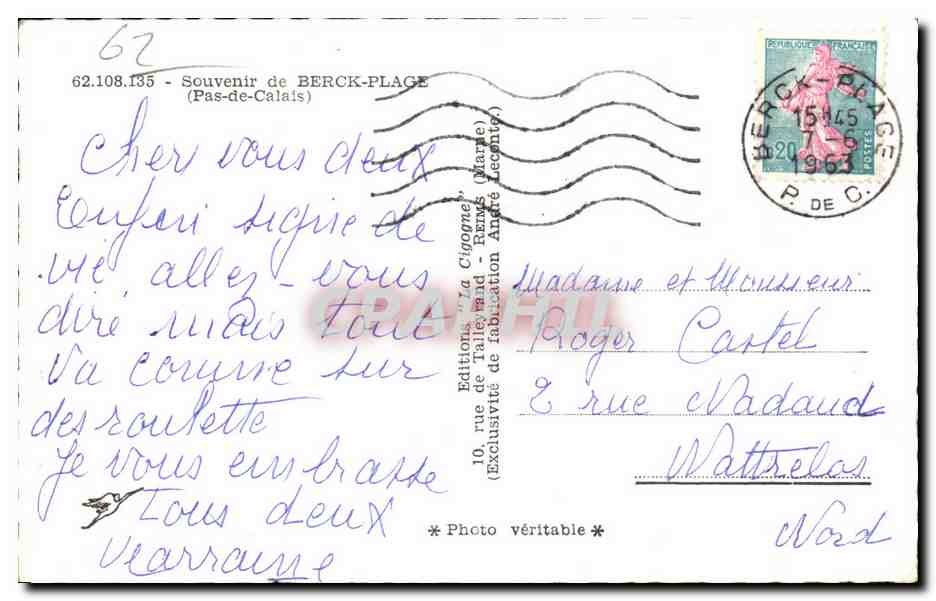 62
62.108.135 - Souvenir de BERCK-PLAGE
(Pas-de-Calais)
Cher vous deux
Enfin signe de
vie, allez-vous
dire mais tout
va comme sur
des roulette
Je vous embrasse
Tous deux
Editions "La Cigogne",
10, rue de Talleyrand - REIMS (Marne)
(Exclusivité de fabrication André Leconte.)
* Photo véritable *
REPUBLIQUE FRANÇAISE
0,20
POSTES
BERCK-PLAGE
15H45
7-6
1963
P. DE C.
Madame et Monsieur
Roger Castel
2 rue Nadaud
Wattrelos
Nord
CPARAMA